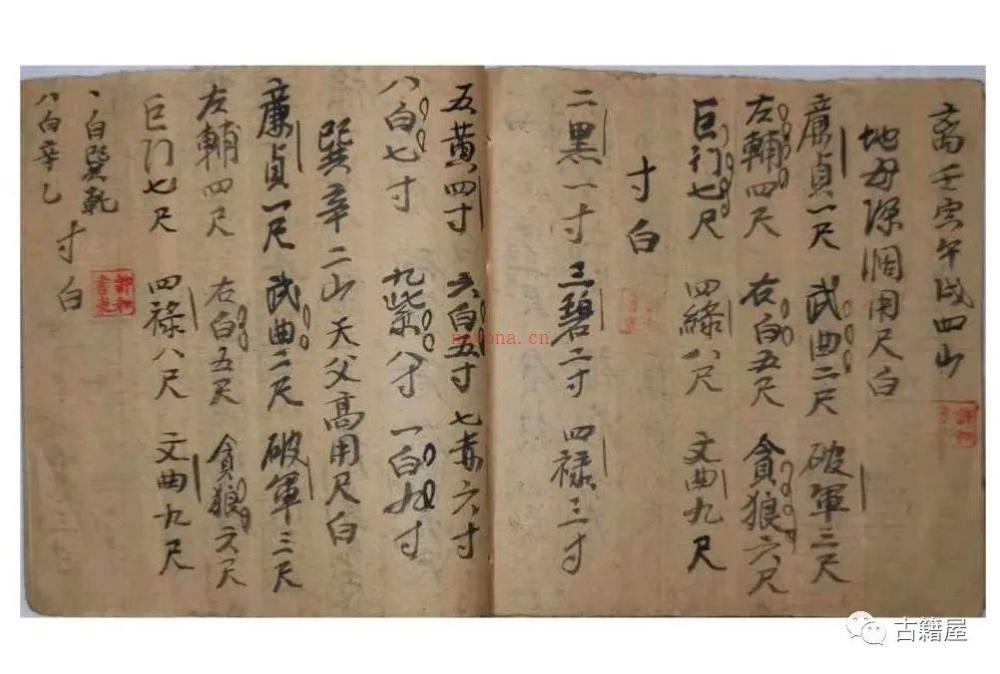 离壬寅午戌四山
地母深濶用尺白
廉貞一尺 武曲二尺 破軍三尺
左輔四尺 右白五尺 貪狼六尺
巨门七尺 四緑八尺 文曲九尺
寸白
二黑一寸 三碧二寸 四禄三寸
五黄四寸 六白五寸 七赤六寸
八白七寸 九紫八寸 一白九寸
巽辛二山天父高用尺白
廉貞一尺 武曲二尺 破軍三尺
左輔四尺 右白五尺 貪狼六尺
巨门七尺 四禄八尺 文曲九尺
寸白
丶白巽乾
八白辛乙
nayona.cn
古籍屋